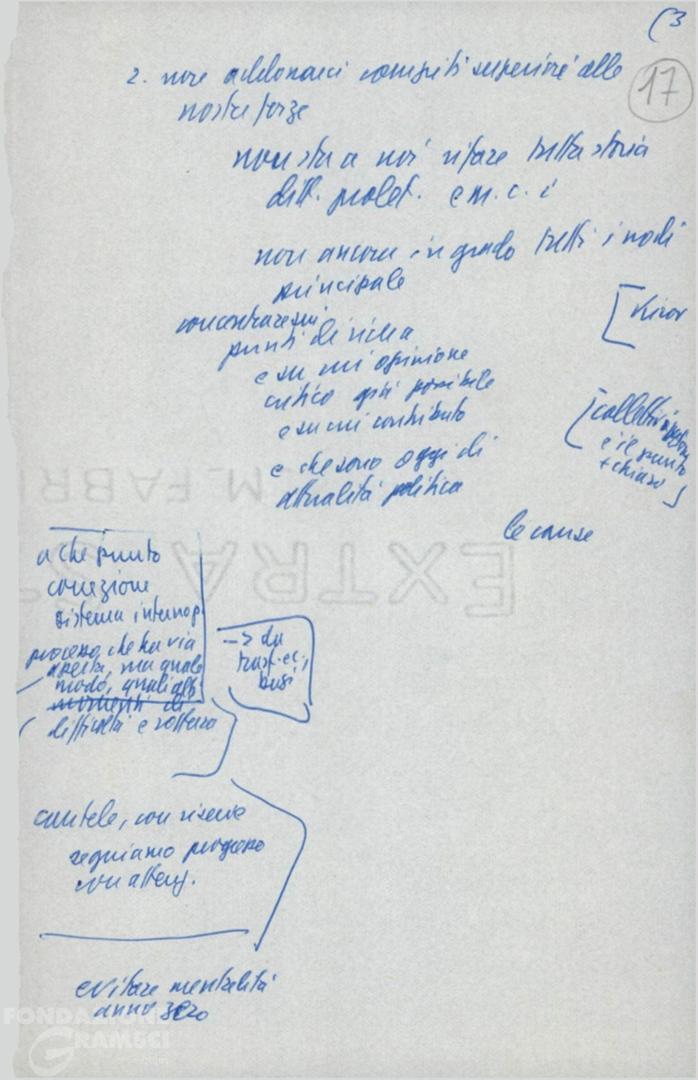 (3
17
2. non addossarci compiti superiori alle
nostre forze
non sta a noi rifare tutta storia
ditt. prolet. e m. c. i
non ancora in grado tutti i nodi
principale
concentrare sui
punti di
e su cui opinione
critica più possibile
e su cui contributo
e che sono oggi di
attualità politica
[Kirov
[collettivizzazione
è il punto
+ chiaro]
le cause
a che punto
correzione
sistema interno
processo che ha via
aperta, ma quale
modo, quali
difficoltà e
-> da
basi
cautele, con riserve
seguiamo progresso
con attenz.
evitare mentalità
anno zero
M FABRI
EXTRA S
FONDAZIONE
GRAMSCI